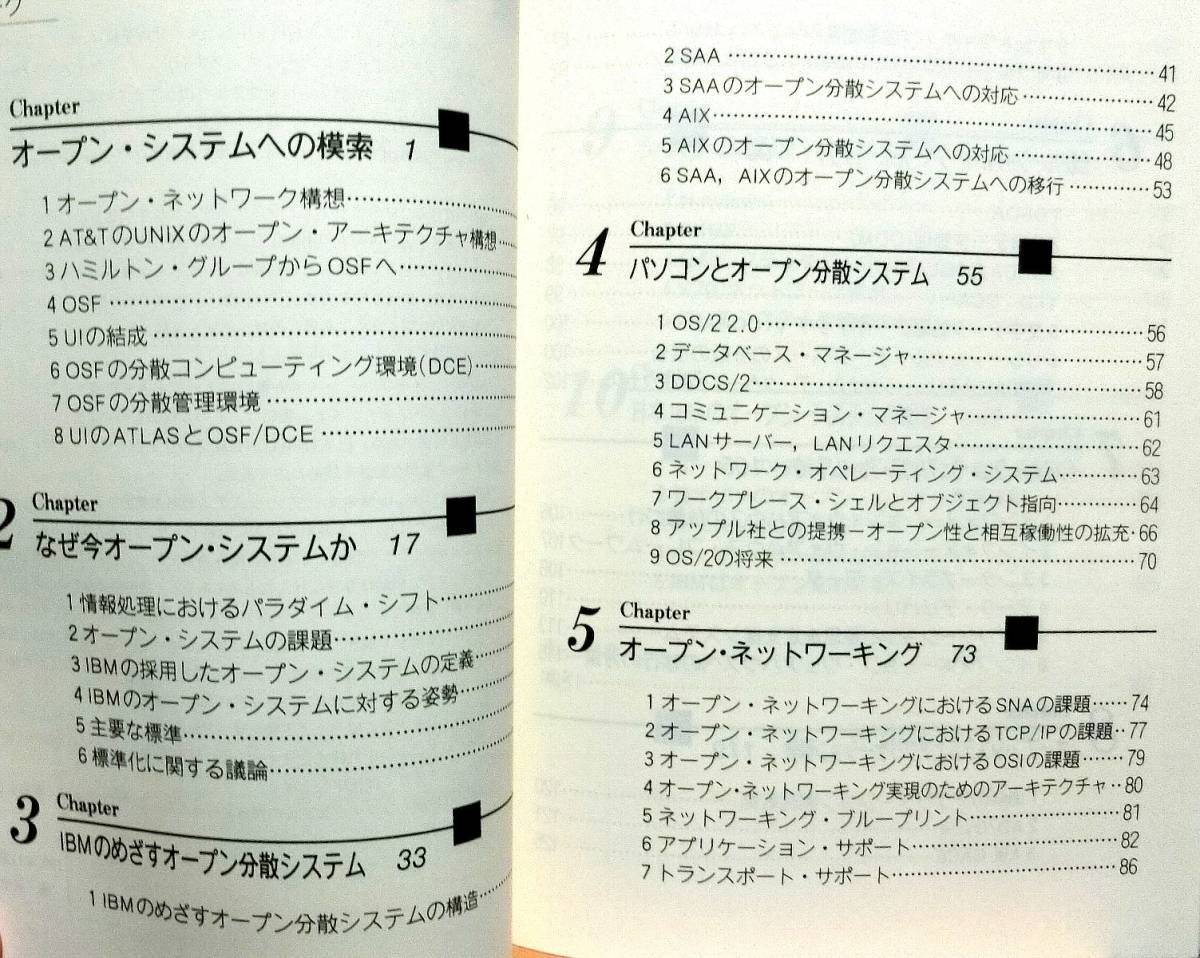 Chapter
オープン・システムへの模索 1
1 オープン・ネットワーク構想
2 AT&TのUNIXのオープン・アーキテクチャ構想
3 ハミルトン・グループからOSFへ
4 OSF
5 UIの結成
6 OSFの分散コンピューティング環境(DCE)
7 OSFの分散管理環境
8 UIのATLASとOSF/DCE
2 Chapter
なぜ今オープン・システムか 17
1 情報処理におけるパラダイム・シフト
2 オープン・システムの課題
3 IBMの採用したオープン・システムの定義
4 IBMのオープン・システムに対する姿勢
5 主要な標準
6 標準化に関する議論
3 Chapter
IBMのめざすオープン分散システム 33
1 IBMのめざすオープン分散システムの構造
2 SAA 41
3 SAAのオープン分散システムへの対応 42
4 AIX 45
5 AIXのオープン分散システムへの対応 48
6 SAA, AIXのオープン分散システムへの移行 53
4 Chapter
パソコンとオープン分散システム 55
1 OS/2 2.0 56
2 データベース・マネージャ 57
3 DDCS/2 58
4 コミュニケーション・マネージャ 61
5 LANサーバー, LANリクエスタ 62
6 ネットワーク・オペレーティング・システム 63
7 ワークプレース・シェルとオブジェクト指向 64
8 アップル社との提携－オープン性と相互稼働性の拡充 66
9 OS/2の将来 70
5 Chapter
オープン・ネットワーキング 73
1 オープン・ネットワーキングにおけるSNAの課題 74
2 オープン・ネットワーキングにおけるTCP/IPの課題 77
3 オープン・ネットワーキングにおけるOSIの課題 79
4 オープン・ネットワーキング実現のためのアーキテクチャ 80
5 ネットワーキング・ブループリント 81
6 アプリケーション・サポート 82
7 トランスポート・サポート 86